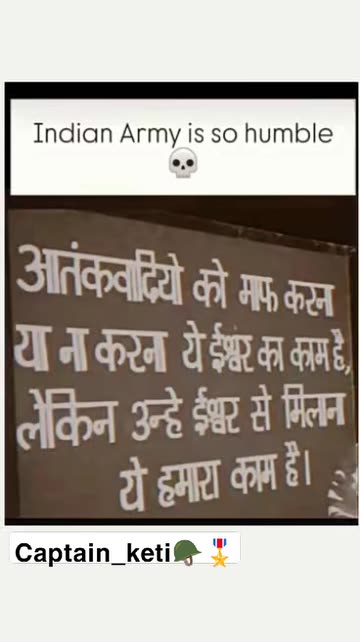 Indian Army is so humble
💀
आतंकवादियो को माफ करना
या ना करना ये ईश्वर का काम है,
लेकिन उन्हे ईश्वर से मिलाना
ये हमारा काम है।
Captain_keti🪖🎖️